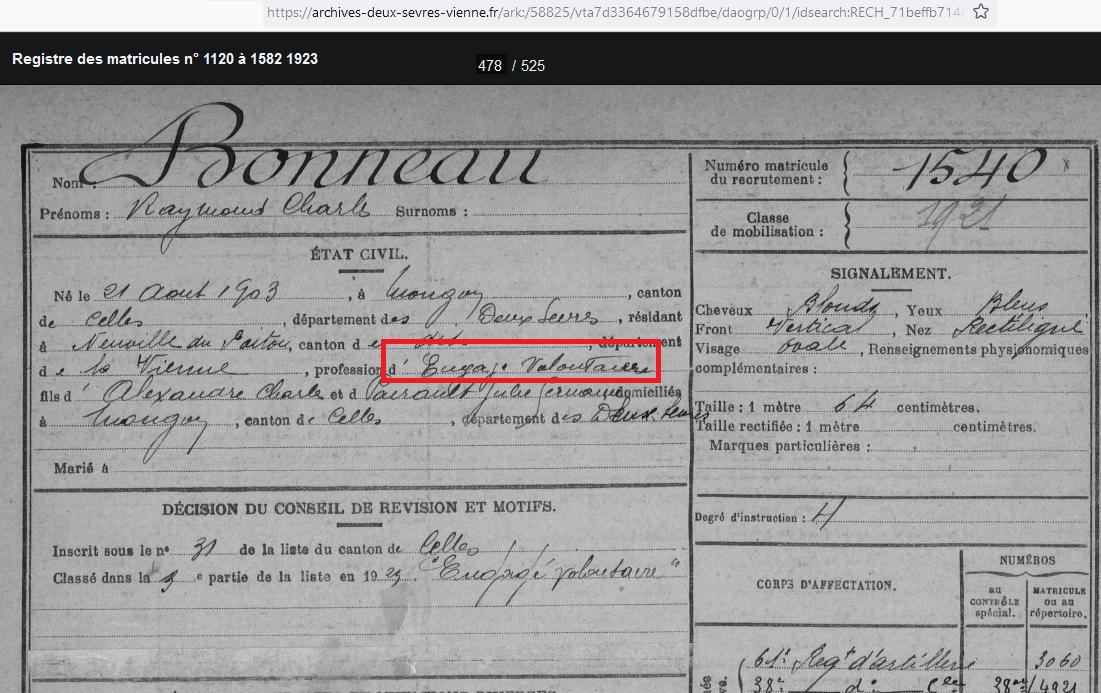 https://archives-deux-sevres-vienne.fr/ark:/58825/vta7d3364679158dfbe/daogrp/0/1/idsearch:RECH_71beffb714
Registre des matricules n° 1120 à 1582 1923
478 / 525
Nom : Bonneau
Prénoms : Raymond Charles Surnoms :
Numéro matricule du recrutement : 1540
Classe de mobilisation : 1921
ÉTAT CIVIL.
Né le 21 Août 1903, à Mougon, canton
de Celles, département des Deux Sevres, résidant
à Neuville du Poitou, canton de dit, département
de la Vienne, profession d' Engagé Volontaire
fils d' Alexandre Charles et d Pairault Julie domiciliés
à Mougon, canton de Celles, département des Deux Sevres
Marié à
SIGNALEMENT.
Cheveux Blonds, Yeux Bleus
Front Vertical, Nez Rectiligne
Visage Ovale, Renseignements physionomiques
complémentaires :
Taille : 1 mètre 64 centimètres.
Taille rectifiée : 1 mètre centimètres.
Marques particulières :
DÉCISION DU CONSEIL DE REVISION ET MOTIFS.
Inscrit sous le n° 31 de la liste du canton de Celles
Classé dans la 3e partie de la liste en 1923. "Engagé volontaire"
Degré d'instruction : 4
CORPS D'AFFECTATION.
NUMÉROS
au CONTRÔLE spécial.
MATRICULE ou au répertoire.
61e Regt d'artillerie 3060
38e d°